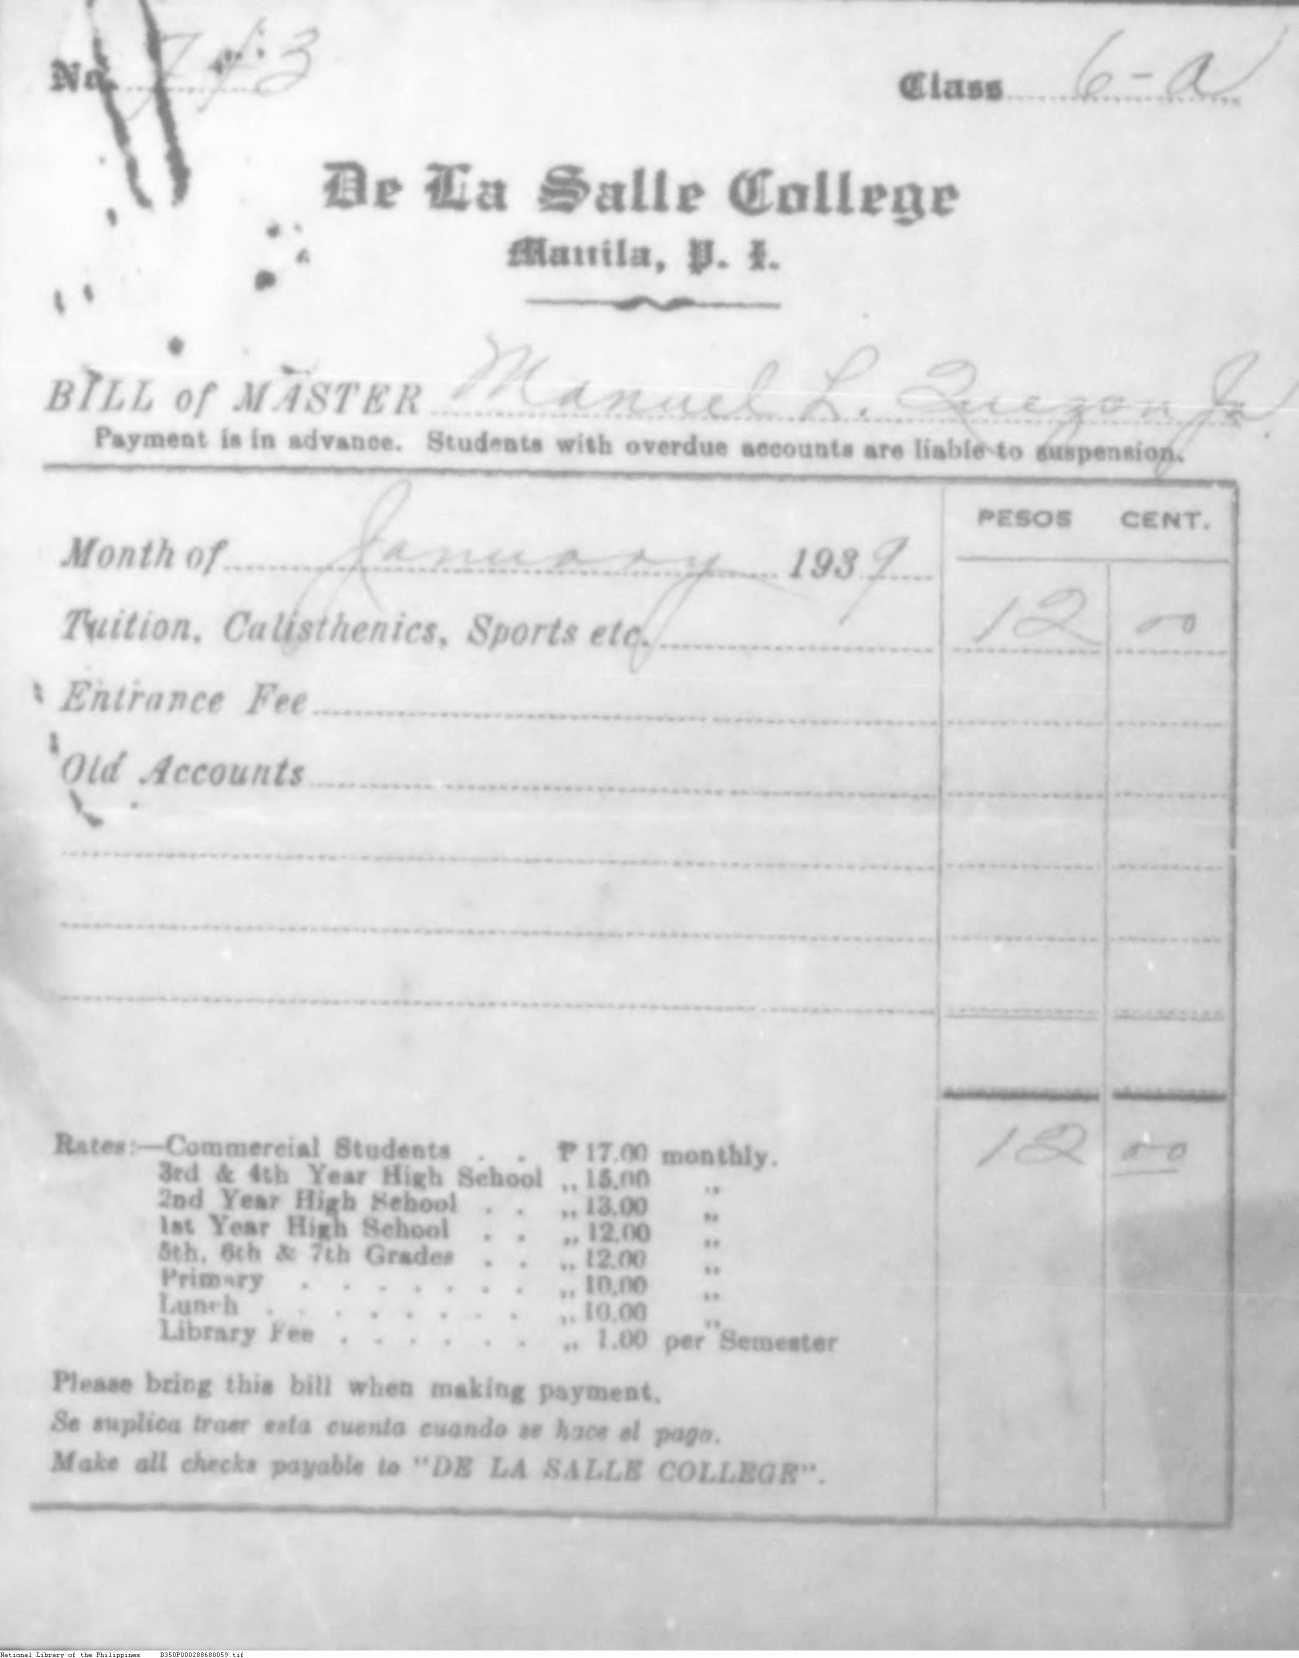 No. 743 Class 6-A
De La Salle College
Manila, P. I.
BILL of MASTER Manuel L. Quezon Jr.
Payment is in advance. Students with overdue accounts are liable to suspension.
PESOS CENT.
Month of January 1939
Tuition, Calisthenics, Sports etc. 12 00
Entrance Fee
Old Accounts
12 00
Rates:—Commercial Students . . ₱ 17.00 monthly.
3rd & 4th Year High School „ 15.00 „
2nd Year High School . . „ 13.00 „
1st Year High School . . „ 12.00 „
5th, 6th & 7th Grades . . „ 12.00 „
Primary . . . . . . . „ 10.00 „
Lunch . . . . . . . . „ 10.00 „
Library Fee . . . . . . „ 1.00 per Semester
Please bring this bill when making payment.
Se suplica traer esta cuenta cuando se hace el pago.
Make all checks payable to "DE LA SALLE COLLEGE".
National Library of the Philippines B350P000288688059.tif